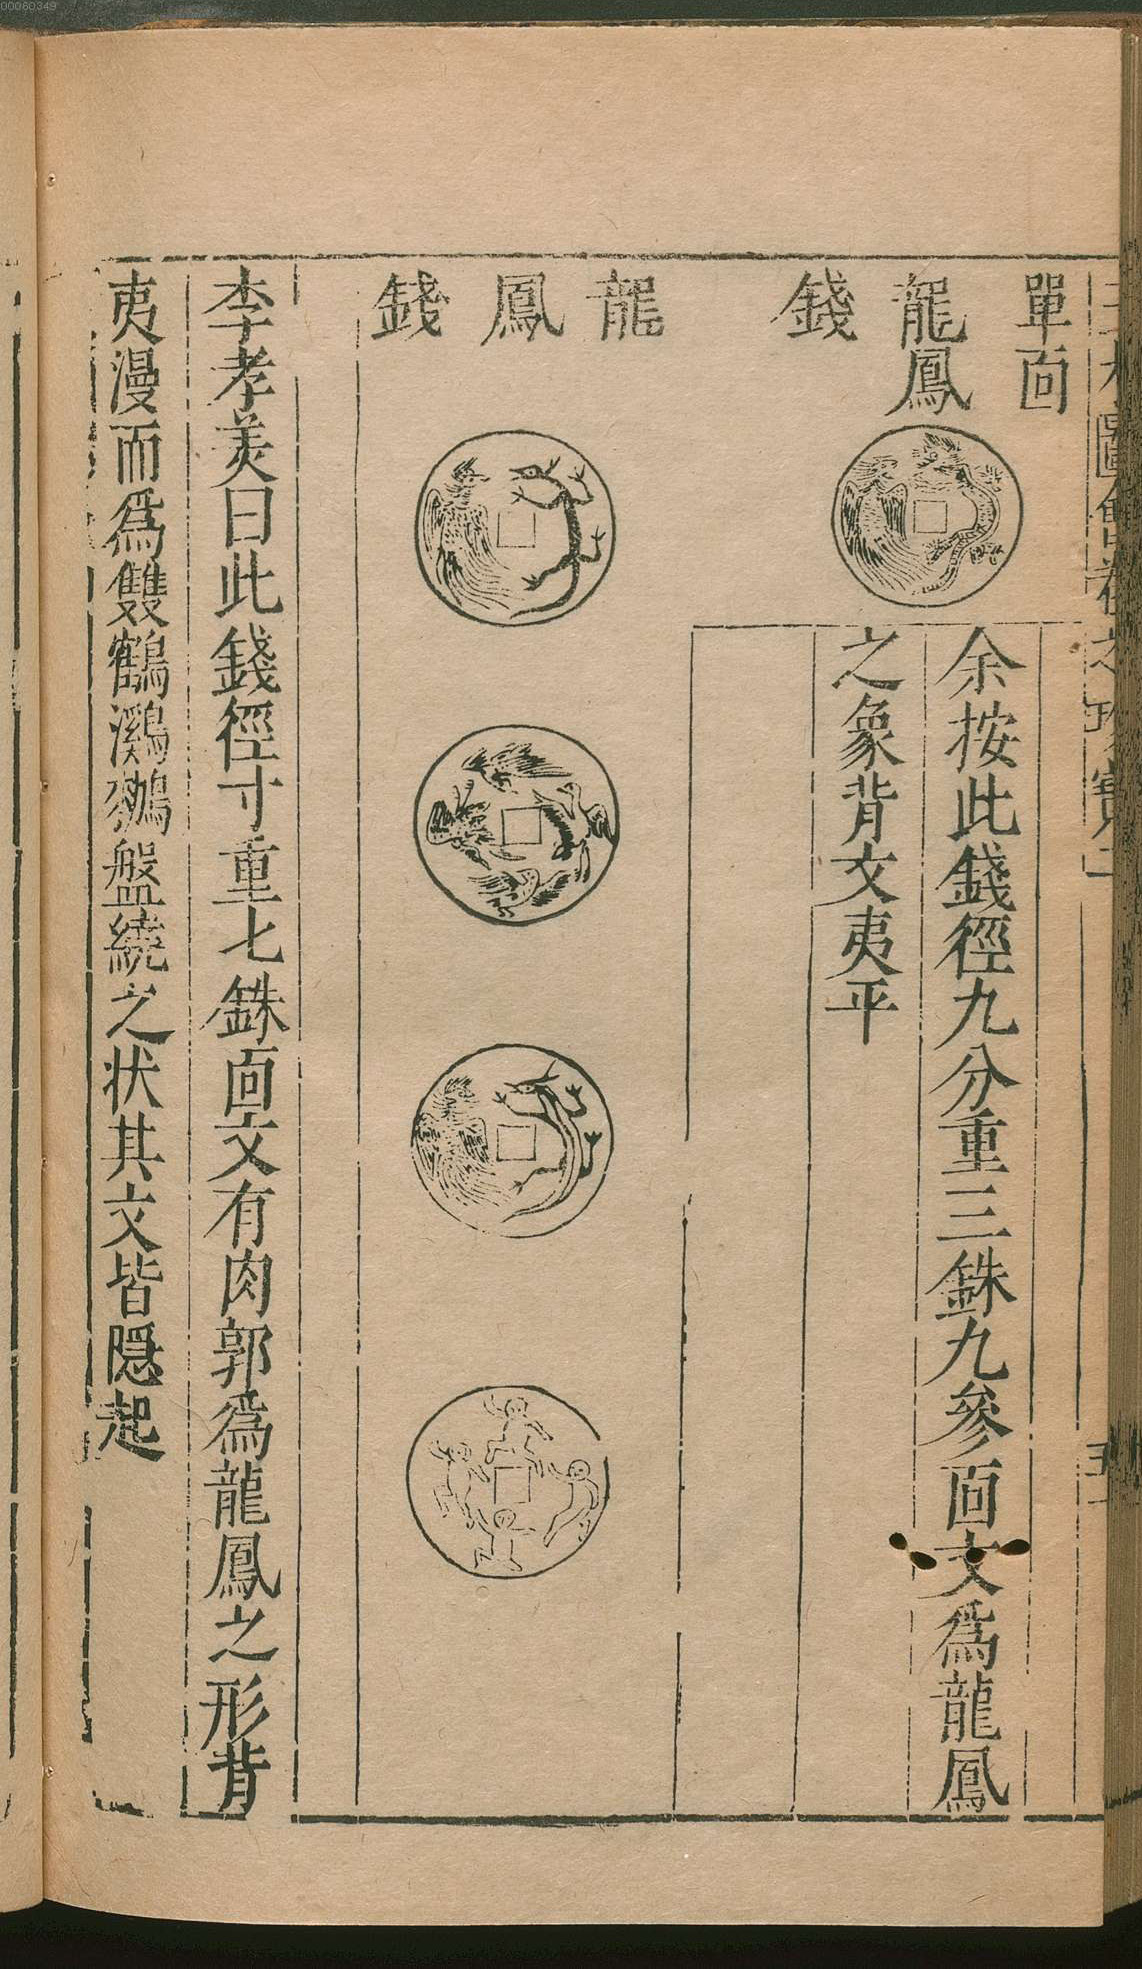 00060349
單面
龍鳳
錢
余按此錢徑九分重三銖九參面文為龍鳳
之象背文夷平
龍鳳錢
李孝美曰此錢徑寸重七銖面文有肉郭為龍鳳之形背
夷漫而為雙鶴鸂鶒盤繞之状其文皆隠起